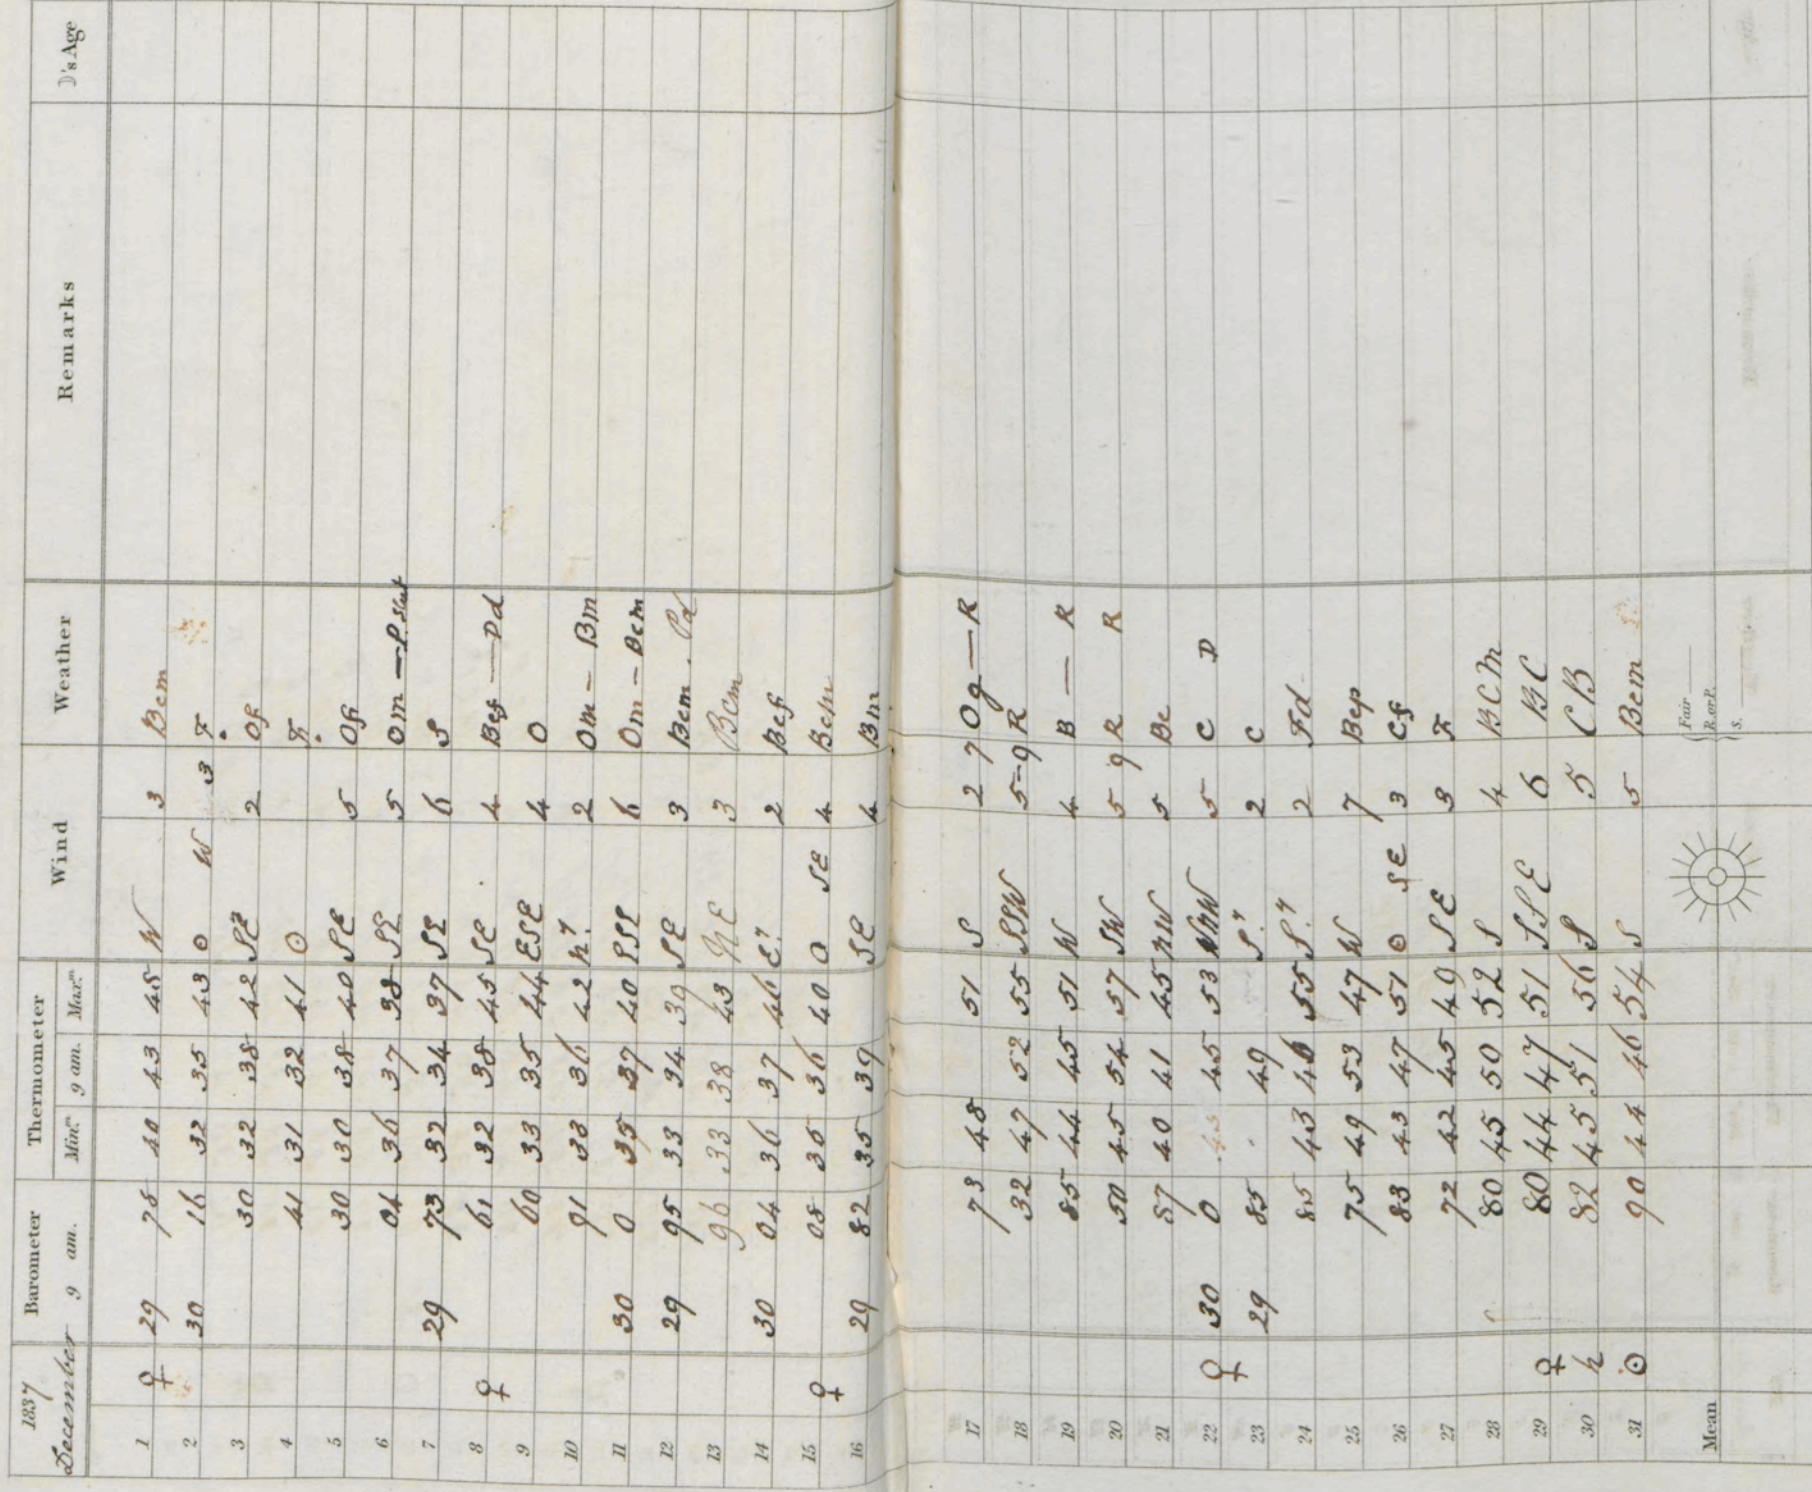 1837 December Barometer 9 am. Thermometer Min.m 9 am. Max.m Wind Weather Remarks ☽'s Age
1 ♀ 29 78 40 43 45 W 3 Bcm
2 30 16 32 35 43 0 W 3 F
3 30 32 38 42 SE 2 Of
4 41 31 32 41 0 F
5 30 30 38 40 SE 5 Of
6 04 36 37 38 SE 5 Om — P Sleet
7 29 73 32 34 37 SE 6 S
8 ♀ 61 32 38 45 SE 4 — Pd
9 60 33 35 44 ESE 4 O
10 91 33 36 42 2 Om — Bm
11 30 0 35 37 40 SSE 6 Om — Bcm
12 29 95 33 34 39 SE 3 Bcm . Pd
13 96 33 38 43 NE 3 Bcm
14 30 04 36 37 46 E.y 2 Bcf
15 ♀ 08 35 36 40 0 SE 4
16 29 82 35 39 SE 4 Bm
17 73 48 51 S 2 7 Og — R
18 32 47 52 55 SSW 5-9 R
19 85 44 45 51 W 4 B — R
20 50 45 54 57 SW 5 9 R R
21 57 40 41 45 NW 5 Bc
22 ♀ 30 0 43 45 53 WNW 5 C D
23 29 85 49 S.y 2 C
24 85 43 46 55 S.y 2 Fd
25 75 49 53 47 W 7 Bcp
26 83 43 47 51 0 SE 3 Cf
27 72 42 45 49 SE 3 F
28 80 45 50 52 S 4 BCM
29 ♀ 80 44 47 51 SSE 6 BC
30 ♄ 82 45 51 56 S 5 CB
31 ☉ 90 44 46 54 S 5 Bcm
Mean
Fair
R. or P.
S.